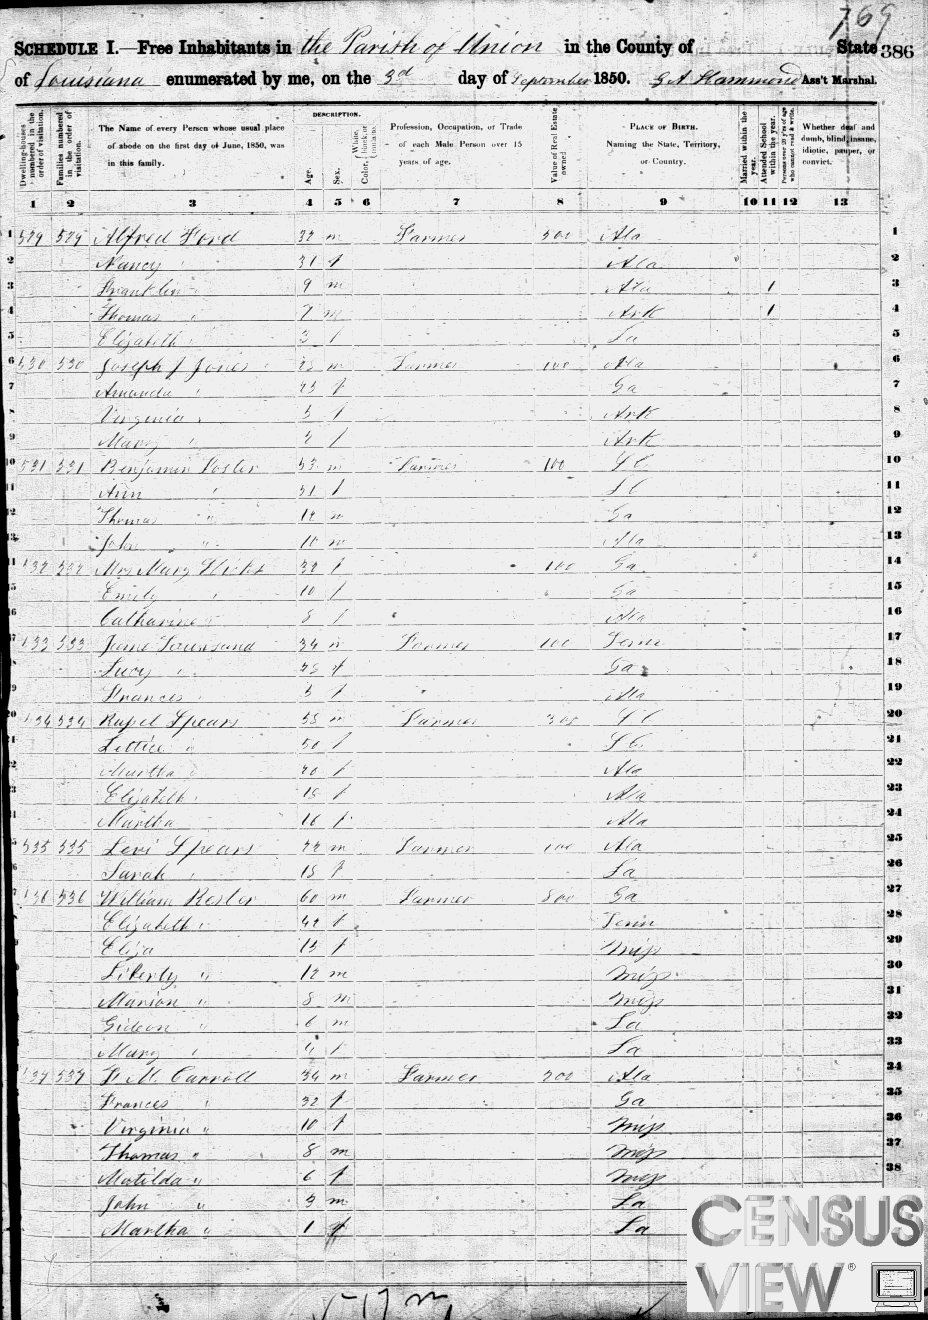 769
SCHEDULE I.—Free Inhabitants in the Parish of Union in the County of State 386
of Louisiana enumerated by me, on the 3d day of September 1850. G A Hammond Ass't Marshal.
Dwelling-houses numbered in the order of visitation.
Families numbered in the order of visitation.
The Name of every Person whose usual place of abode on the first day of June, 1850, was in this family.
DESCRIPTION.
Age.
Sex.
Color, White, black, or mulatto.
Profession, Occupation, or Trade of each Male Person over 15 years of age.
Value of Real Estate owned.
PLACE OF BIRTH. Naming the State, Territory, or Country.
Married within the year.
Attended School within the year.
Persons over 20 y'rs of age who cannot read & write.
Whether deaf and dumb, blind, insane, idiotic, pauper, or convict.
1 2 3 4 5 6 7 8 9 10 11 12 13
1 529 529 Alfred Ford 32 m Farmer 500 Ala 1
2 Nancy " 31 f Ala 2
3 Franklin " 9 m Ala 1 3
4 Thomas " 7 m Ark 1 4
5 Elizabeth " 3 f La 5
6 530 530 Joseph J Jones " m Farmer 100 Ala 6
7 Amanda " f Ga 7
8 Virginia " f Ark 8
9 Mary " f Ark 9
10 531 531 Benjamin Foster 53 m Farmer 100 S C 10
11 Ann " 51 f S C 11
12 Thomas " 12 m Ga 12
13 John " 10 m Ala 13
532 Mrs Mary Hicks 32 f 100 Ga 14
15 Emily " 10 f Ga 15
16 Catharine " 8 f Ala 16
533 Townsand 34 m Farmer 100 Tenn 17
Lucy " f Ga 18
Frances " f Ala 19
20 534 Spears 55 m Farmer 300 S C 20
21 Lettice " 50 f S C 21
22 Martha " 20 f Ala 22
Elizabeth " 18 f Ala 23
Martha 16 f Ala 24
535 535 Levi Spears 22 m Farmer 100 Ala 25
Sarah " 18 f La 26
536 William Kesler 60 m Farmer 800 Ga 27
Elizabeth " 42 f Tenn 28
Eliza " f Miss 29
Liberty " 12 m Miss 30
Marion " 8 m Miss 31
Gideon " 6 m La 32
Mary " 4 f La 33
537 F M Carroll 34 m Farmer 200 Ala 34
Frances " 32 f Ga 35
Virginia " 10 f Miss 36
Thomas " 8 m Miss 37
Matilda " 6 f Miss 38
John " 3 m La
Martha " 1 f La
CENSUS
VIEW®